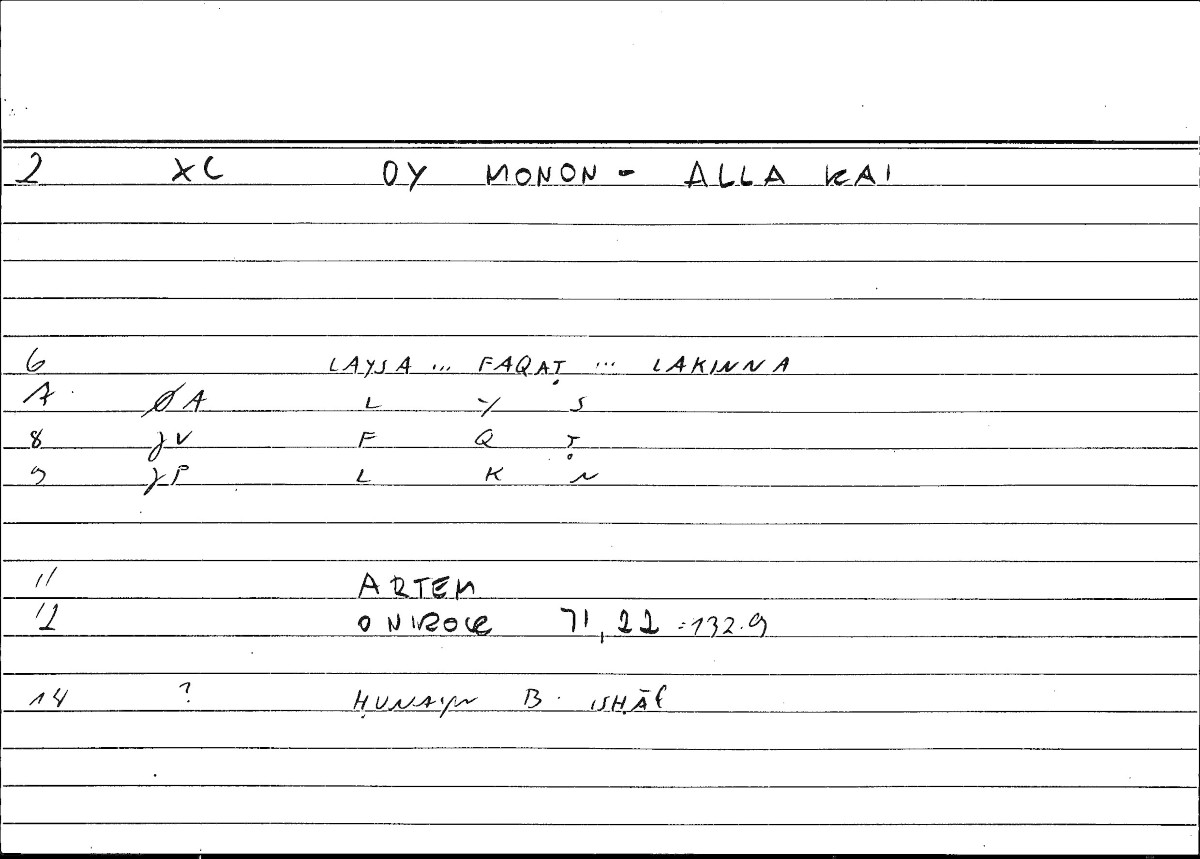 2 XC OY MONON - ALLA KAI
6 LAYSA ... FAQAṬ ... LAKINNA
7 ØA L Y S
8 JV F Q Ṭ
9 JP L K N
11 ARTEM
12 ONIROCR 71,22 =132.9
14 ? ḤUNAYN B. ISḤĀQ